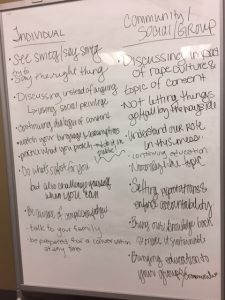 INDIVIDUAL
• See smtg/say smtg
try to
• Say the right thing
• Discussing instead of arguing
↳ using social privilege
• Continuing dialogue of consent
• watch your language & assumptions
• practice what you preach
• Do what's safe for you
but also challenge yourself
when you can
• talk to your family
• be prepared for a conversation
at any time
Community/
Social/Group
• Discussing impact
of rape culture &
topic of consent
• Not letting things
go
• Understand our role
in this
- continuing education
• Normalize topic
• Setting expectations &
enforce accountability
• Bring our knowledge back
& make it sustainable
• Bringing education to
your groups/